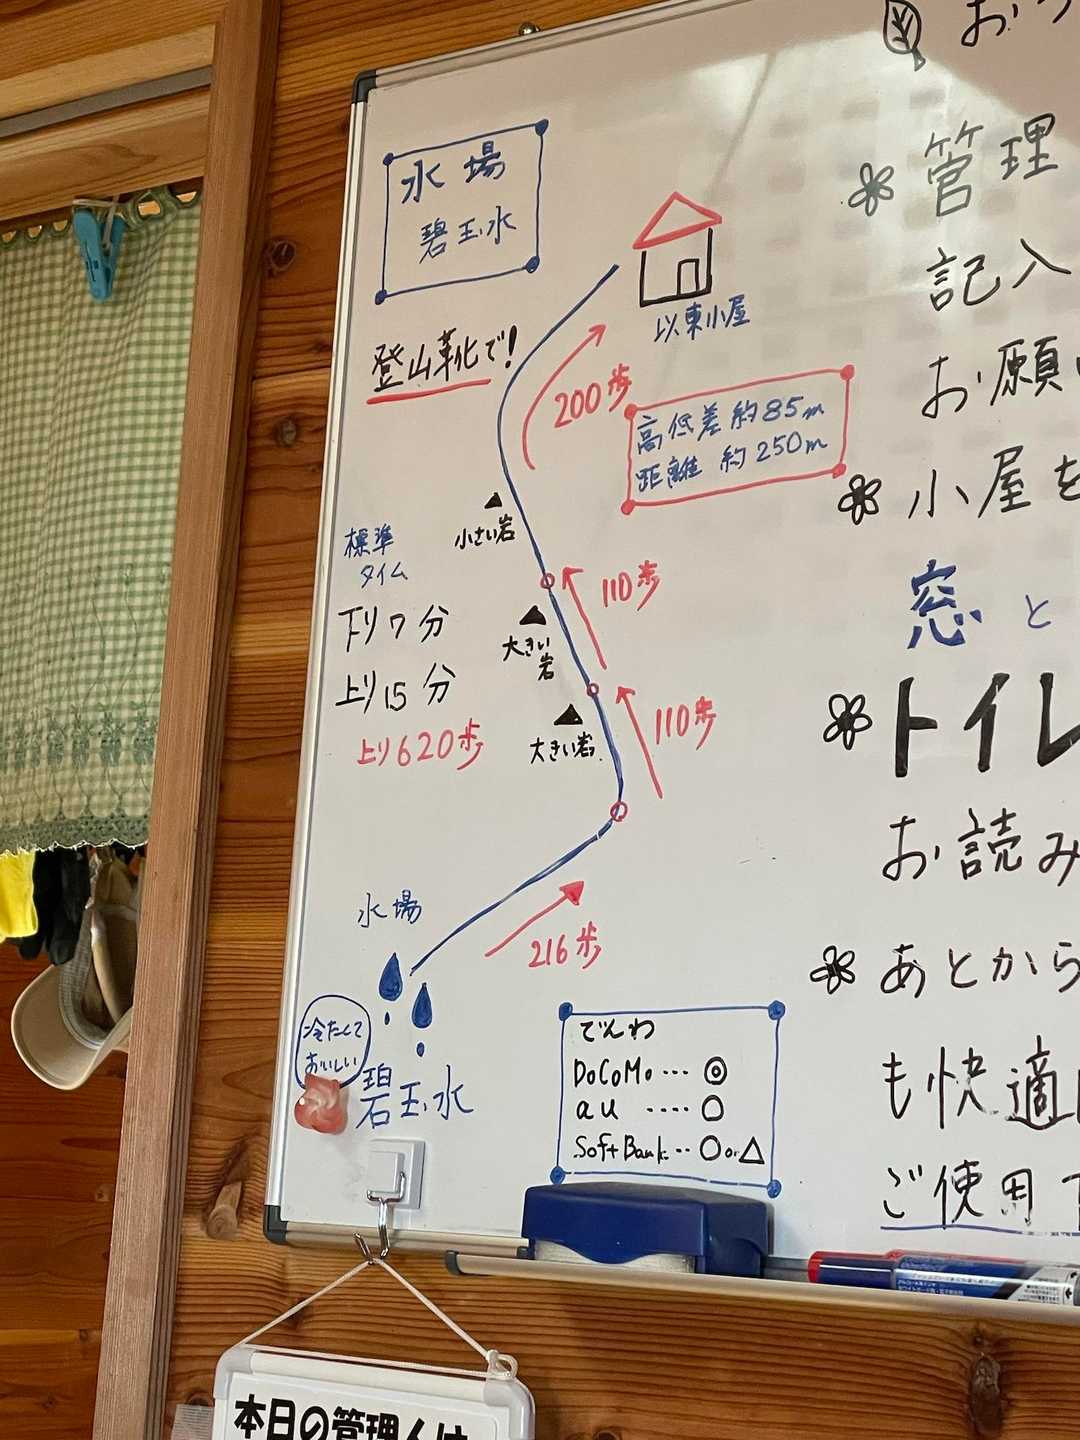 水場
碧玉水
登山靴で!
以東小屋
200歩
高低差 約85m
距離 約250m
小さい岩
標準
タイム
110歩
下り7分
大きい
岩
上り15分
110歩
上り620歩
大きい岩
水場
216歩
冷たくて
おいしい
碧玉水
でんわ
DoCoMo…◎
au ‥‥○
SoftBank‥○or△
管理
記入
お願
小屋を
窓と
トイレ
お読み
あとから
も快適
ご使用
本日の管理人は